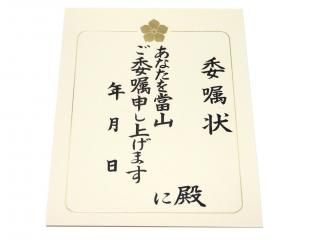 委嘱状
殿
に
あなたを當山
ご委嘱申し上げます
年月日